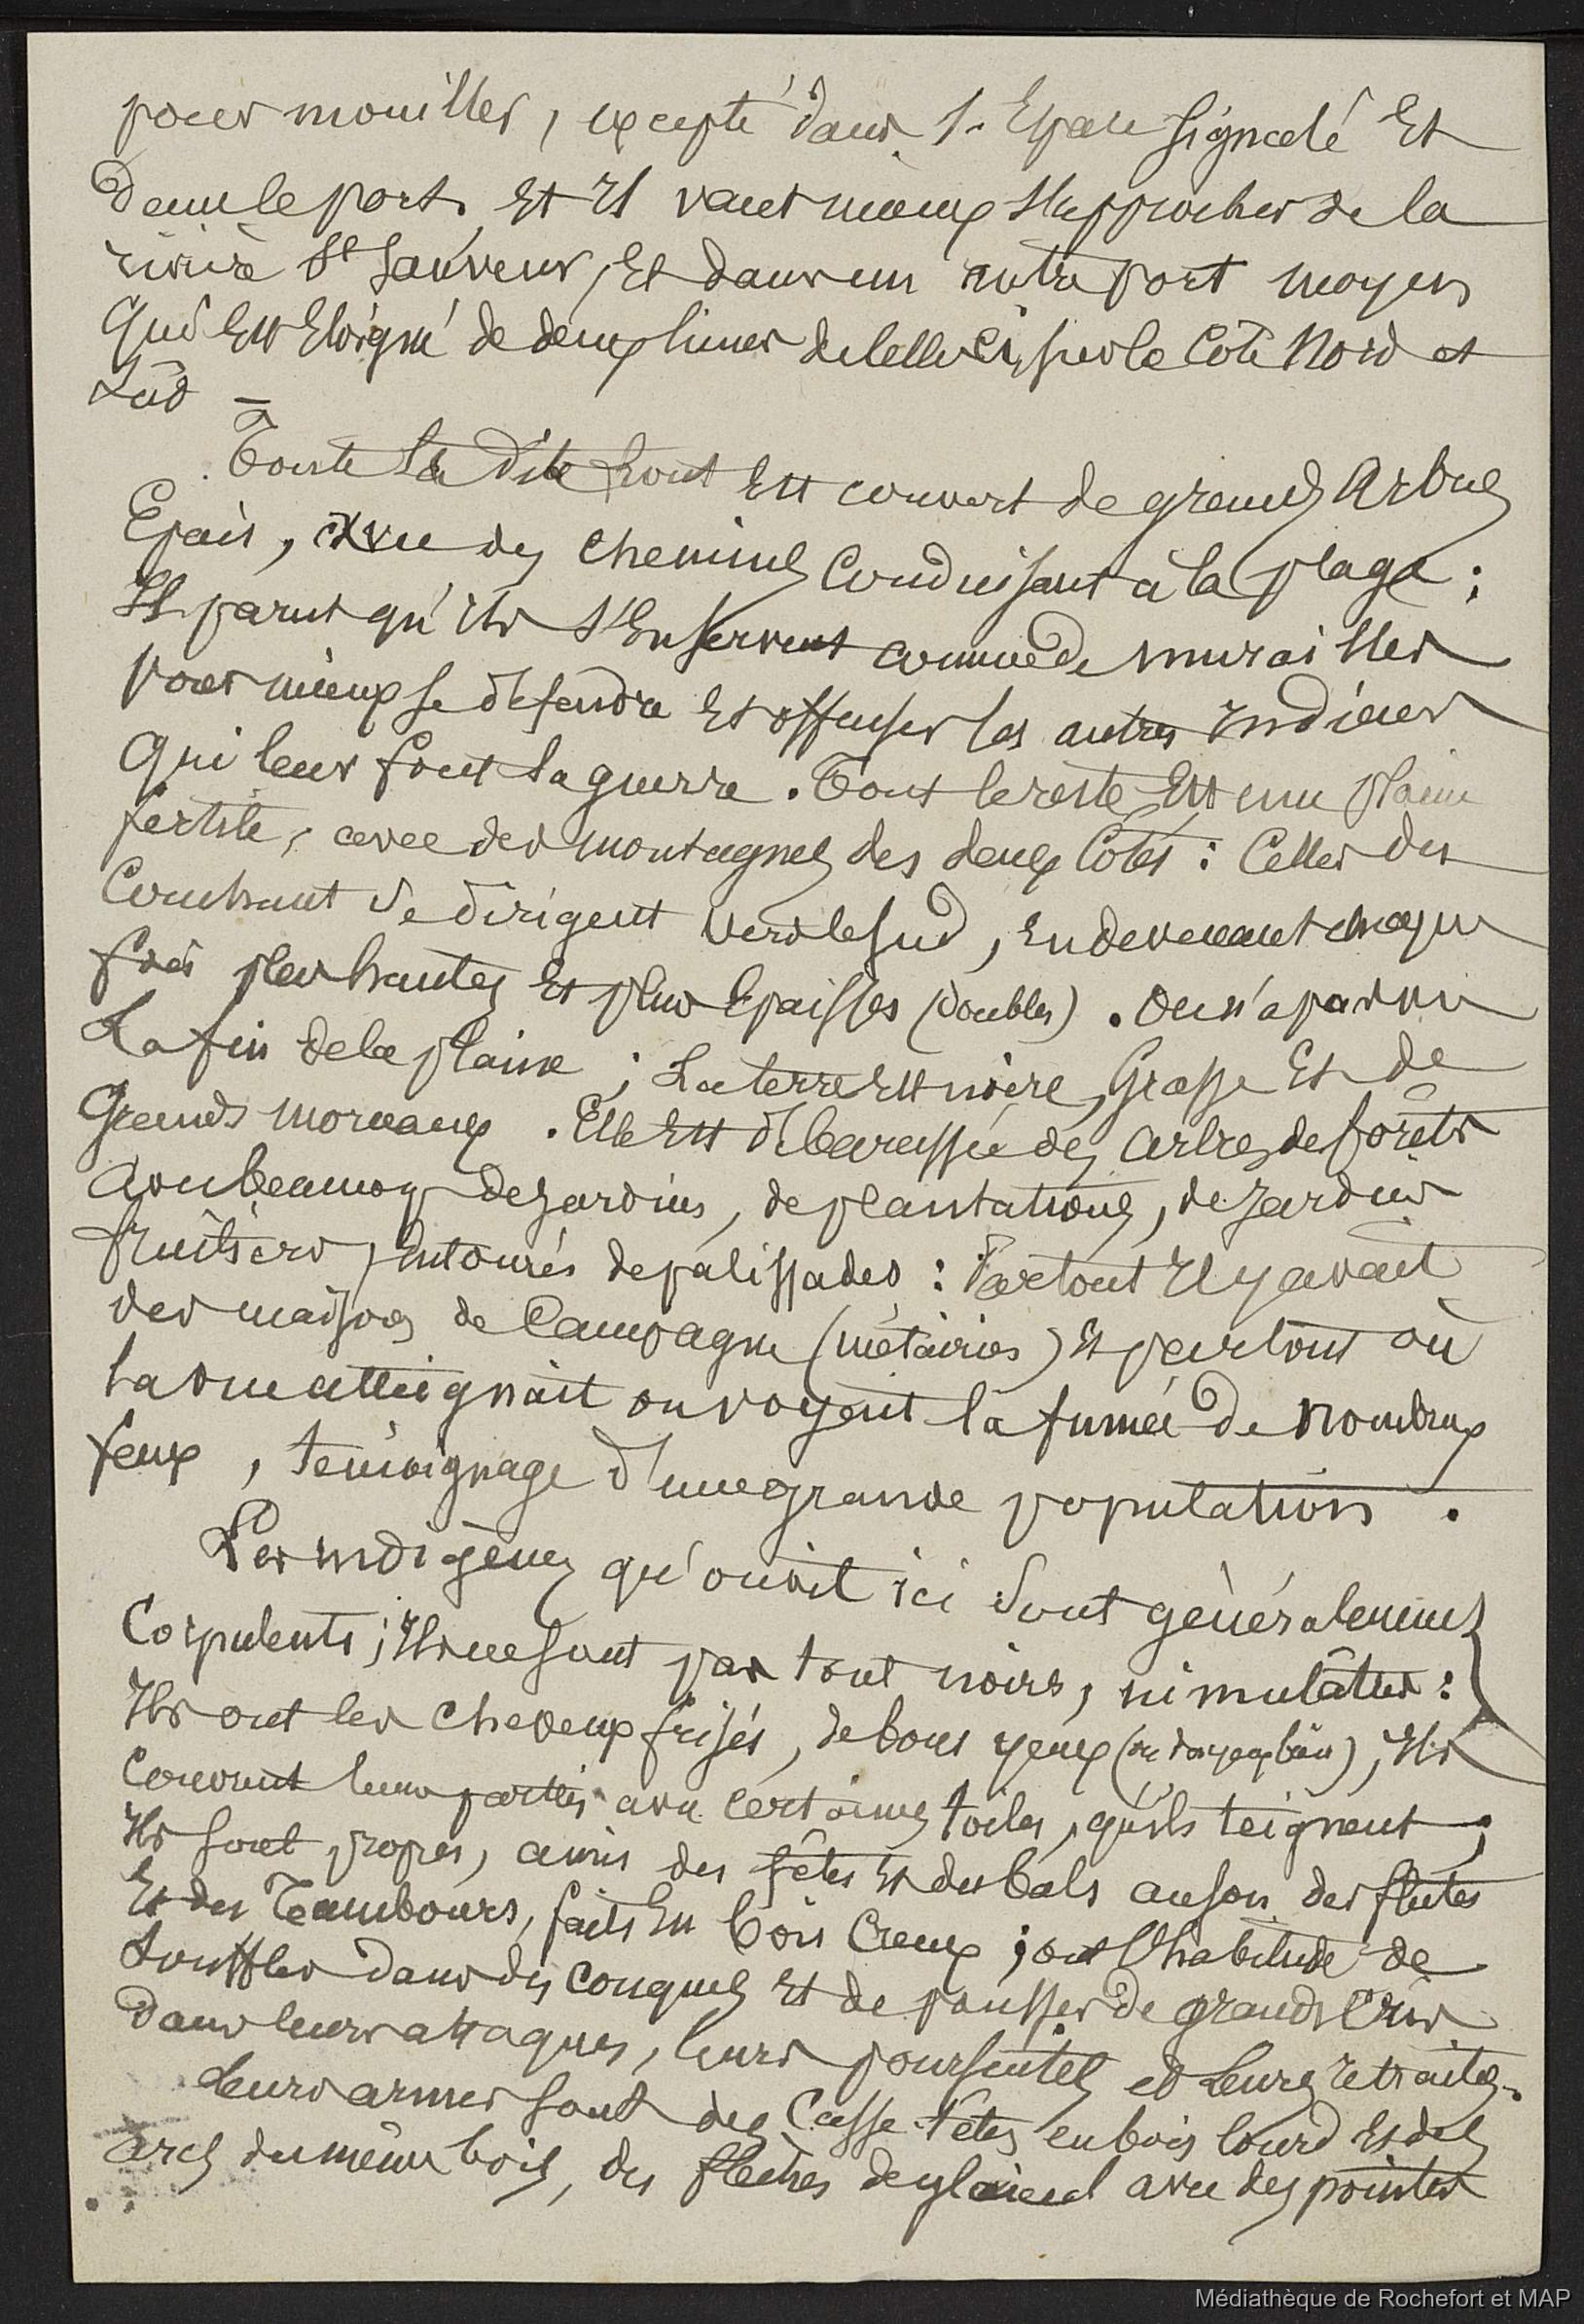 pour mouiller, excepté dans l'Espace signalé Et
dans le port, Et Il vaut mieux s'approcher de la
rivière St Sauveur, Et dans un autre port moyen
Qui Est Eloigné de deux lieues de celle ci, sur le Côté Nord et
Sud —
Toute la dite front Est couvert de grands Arbres
Epais, avec des chemins Conduisant à la plage ;
Il parut qu'ils s'En servent comme de murailles
pour mieux se défendre Et offenser les autres Indiens
Qui leur font la guerre. Tout le reste Est une plaine
fertile, avec des montagnes des deux Côtés : Celles du
Couchant se dirigent vers le sud, En devenant chaque
fois plus hautes Et plus Epaisses (doubles). On n'a pas vu
La fin de la plaine ; La terre Est noire, Grasse Et de
Grands morceaux. Elle Est débarassée des arbres de forêts
avec beaucoup de Jardins, de plantations, de Jardins
fruitiers, Entourés de palissades : Partout Il y avait
des maisons de Campagne (métairies) Et partout où
la vue atteignait on voyait la fumée de nombreux
feux, témoignage d'une grande population.
Les indigènes qu'on vit ici sont généralement
Corpulents ; Ils ne sont pas tout noirs, ni mulâtres :
Ils ont les cheveux frisés, de bons yeux (), Ils
Couvrent leurs parties avec certaines toiles, qu'ils teignent ;
Ils sont propres, amis des fêtes Et des bals au son des flûtes
Et des Tambours, faits En bois Creux ; ont l'habitude de
Souffler dans des conques Et de pousser de grands Cris
dans leurs attaques, leurs poursuites et leurs retraites.
Leurs armes sont des Casse-têtes en bois lourd Et des
arcs du même bois, des flèches de glaieul avec des pointes
Médiathèque de Rochefort et MAP